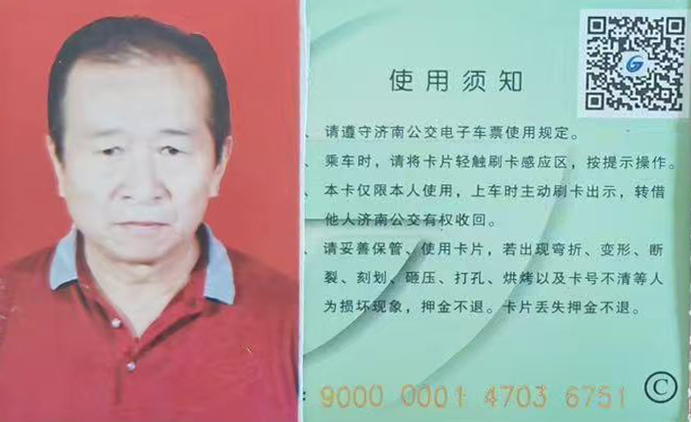 使用须知
、请遵守济南公交电子车票使用规定。
、乘车时，请将卡片轻触刷卡感应区，按提示操作。
、本卡仅限本人使用，上车时主动刷卡出示，转借
他人济南公交有权收回。
、请妥善保管、使用卡片，若出现弯折、变形、断
裂、刻划、砸压、打孔、烘烤以及卡号不清等人
为损坏现象，押金不退。卡片丢失押金不退。
: 9000 0001 4703 6751 Ⓒ